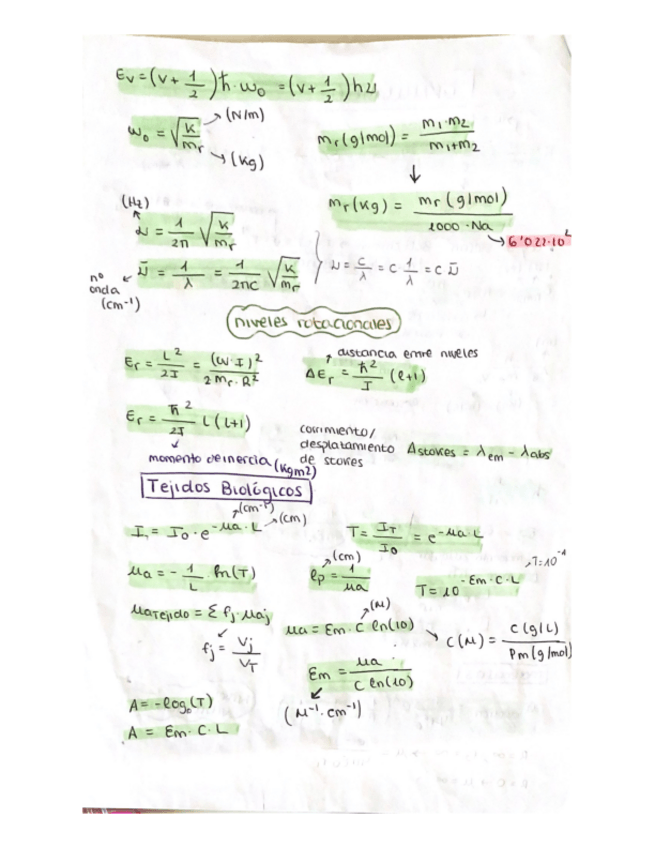 Ev = (v + 1/2) ħ · ω₀ = (v + 1/2) hν
ω₀ = √(K/mr) → (N/m) → (Kg)
mr (g/mol) = m₁ · m₂ / m₁ + m₂
↓
mr (Kg) = mr (g/mol) / 1000 · Na → 6'022·10²
(Hz)
ν = 1/2π √(K/mr)
ν̄ = 1/λ = 1/2πc √(K/mr) } ν = c/λ = c 1/λ = c ν̄
nº onda (cm⁻¹)
niveles rotacionales
Er = L²/2I = (W·I)²/2mr·R²
distancia entre niveles
ΔEr = ħ²/I (l+1)
Er = ħ²/2I L(L+1)
momento de inercia (Kgm2)
corrimiento/
desplatamiento
de stokes
Δstokes = λem − λabs
Tejidos Biológicos
(cm⁻¹)
I₁ = I₀ · e^−μa · L → (cm)
T = IT/I₀ = e^−μa · L
μa = − 1/L ln(T)
(cm)
lp = 1/μa
T = 10^−Em · C · L → T=10^-A
μa Tejido = Σ fj · μaj
fj = Vj/VT
(M)
μa = Em · C ln(10) → C(M) = C (g/L) / Pm (g/mol)
Em = μa / C ln(10)
(M⁻¹ · cm⁻¹)
A = −log (T)
A = Em · C · L